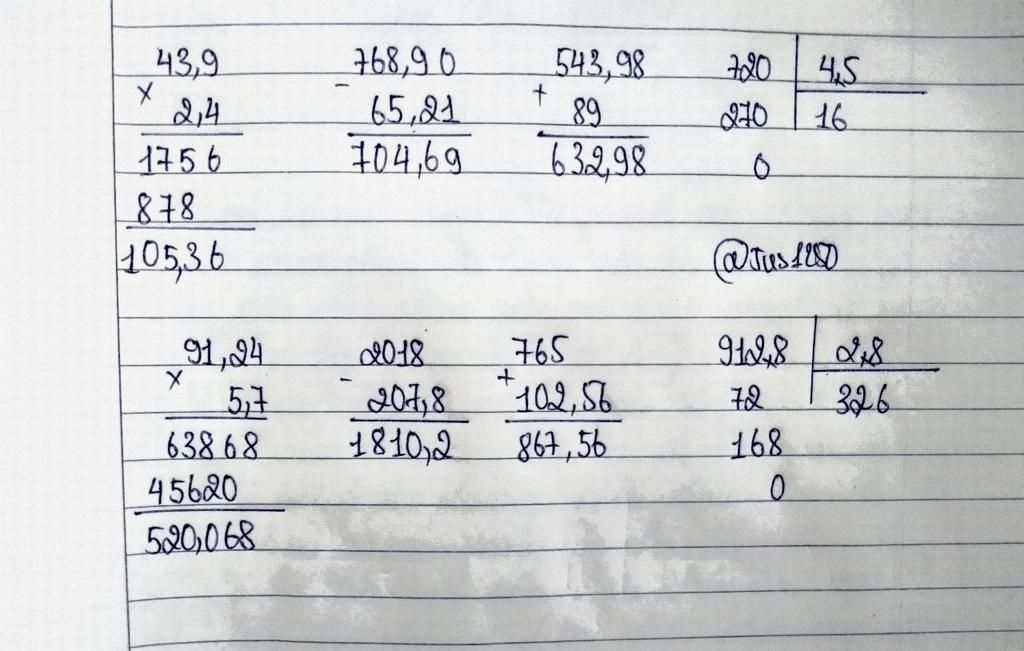 43,9 768,90 543,98 720 4,5
× 2,4 - 65,21 + 89 270 16
1756 704,69 632,98 0
878
105,36 @Jus1280
91,24 2018 765 912,8 2,8
× 5,7 - 207,8 + 102,56 72 326
63868 1810,2 867,56 168
45620 0
520,068